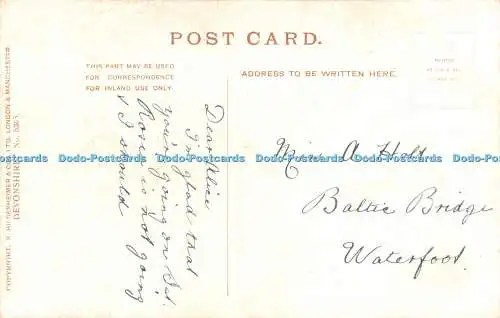 POST CARD.
THIS PART MAY BE USED
FOR CORRESPONDENCE
FOR INLAND USE ONLY.
ADDRESS TO BE WRITTEN HERE.
Dear Alice
I'm glad that
your going on Sat.
Rose is not going
& I should
Miss A Holt
Baltic Bridge
Waterfoot.
COPYRIGHT. R. HILDESHEIMER & CO. LTD. LONDON & MANCHESTER
DEVONSHIRE No.
Dodo-Postcards Dodo-Postcards Dodo-Postcards Dodo-Postcards Dodo-Postcards